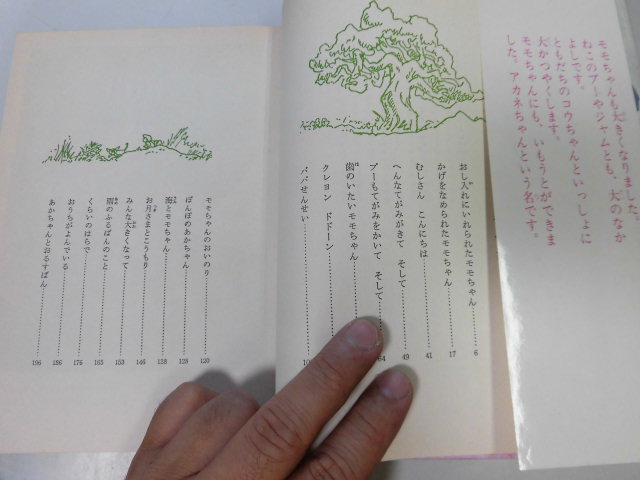 モモちゃんも大きくなりました。
ねこのプーやジャムとも、犬のなか
よしです。
ともだちのコウちゃんといっしょに
大かつやくします。
モモちゃんにも、いもうとができま
した。アカネちゃんという名です。
おし入れにいれられたモモちゃん 6
かげをなめられたモモちゃん 17
むしさん こんにちは 41
へんなてがみがきて そして 49
プーもてがみをかいて そして 64
歯のいたいモモちゃん
クレヨン ドドーン
パパせんせい 10
モモちゃんのおいのり 120
ぽんぽのあかちゃん 128
海とモモちゃん 138
お月さまとこうもり 146
みんな大きくなって 153
雨のふるばんのこと 165
くらいのはらで 176
おうちがよんでいる 186
あかちゃんとおるすばん 196